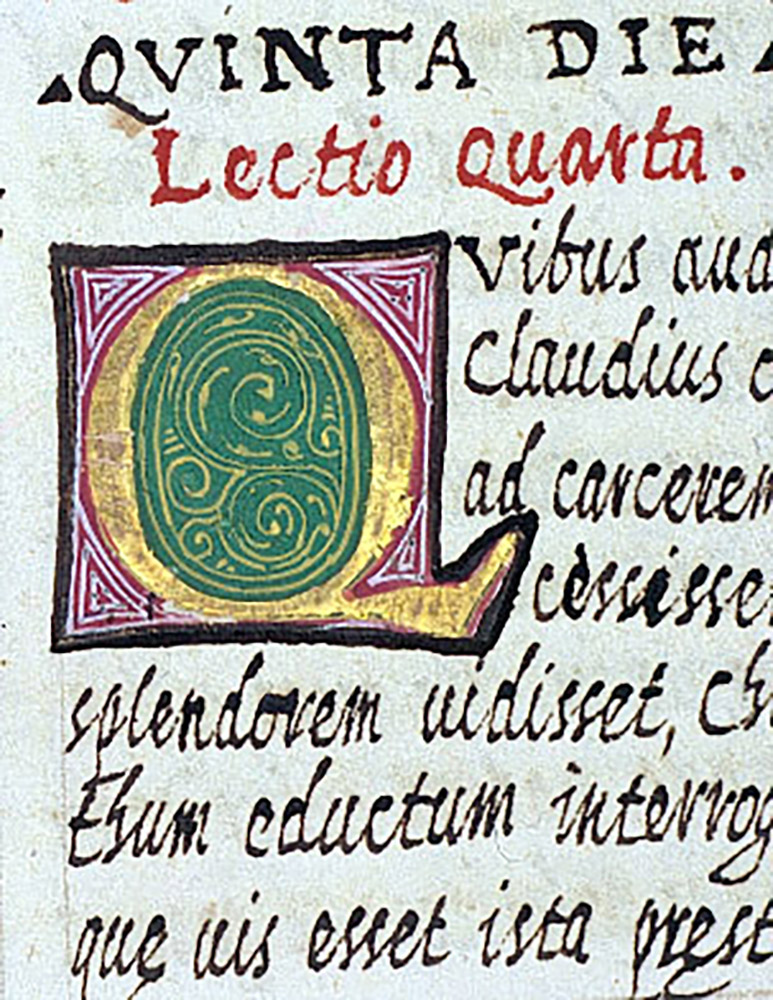 QVINTA DIE
Lectio Quarta.
Qvibus aud
Claudius c
ad carcerem
cèssisse
splendorem uidisset, Ch
Ehum eductum interrog
quę uis esset ista pręst